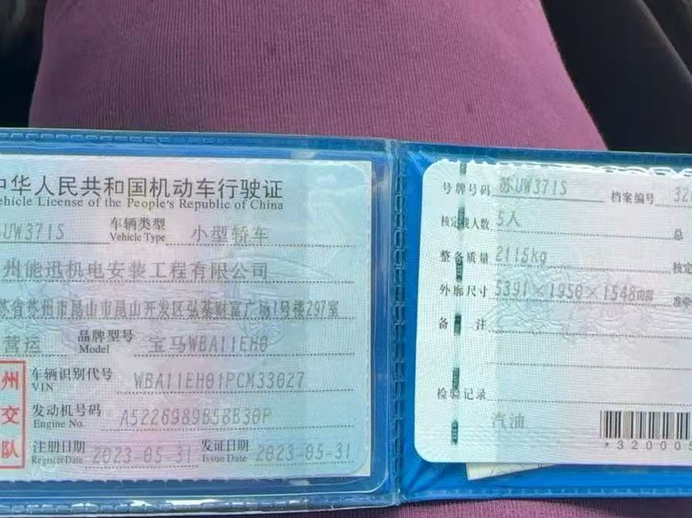 中华人民共和国机动车行驶证
Vehicle License of the People's Republic of China
UW371S 车辆类型 Vehicle Type 小型轿车
州能迅机电安装工程有限公司
苏省苏州市昆山市昆山开发区弘基财富广场1号楼297室
营运 品牌型号 Model 宝马WBA11EH0
车辆识别代号 VIN WBA11EH01PCM33027
发动机号码 Engine No. A5226989B58B30P
注册日期 Register Date 2023-05-31 发证日期 Issue Date 2023-05-31
州
交
队
号牌号码 苏UW371S 档案编号 320
核定载人数 5人 总
整备质量 2115kg 核定
外廓尺寸 5391×1950×1548mm
备 注
检验记录
汽油
*32000